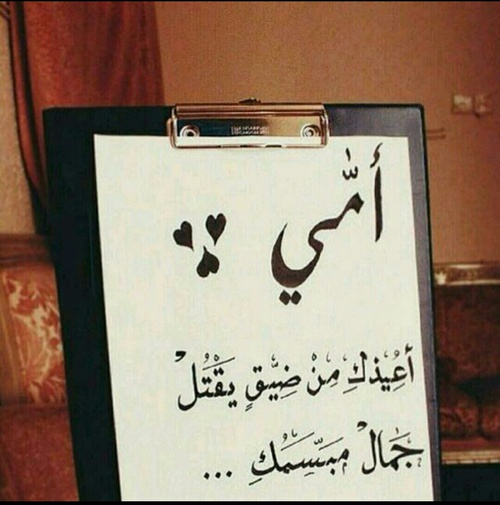 أمّي
أعِيذكِ مِنْ ضِيّقٍ يَقْتُلْ
جَمالْ مَبَسّمَكِ ...